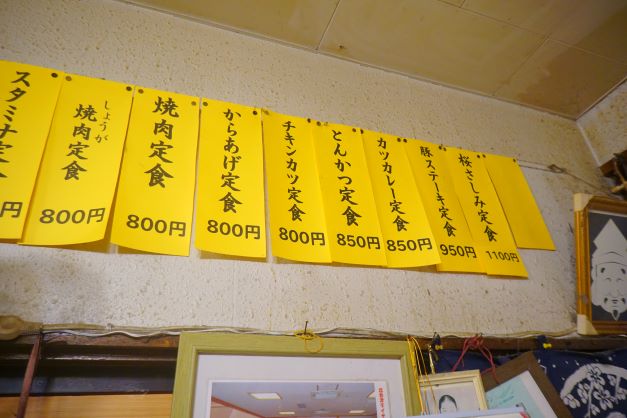 スタミナ定食
円
しょうが
焼肉定食
800円
焼肉定食
800円
からあげ定食
800円
チキンカツ定食
800円
とんかつ定食
850円
カツカレー定食
850円
豚ステーキ定食
950円
桜さしみ定食
1100円